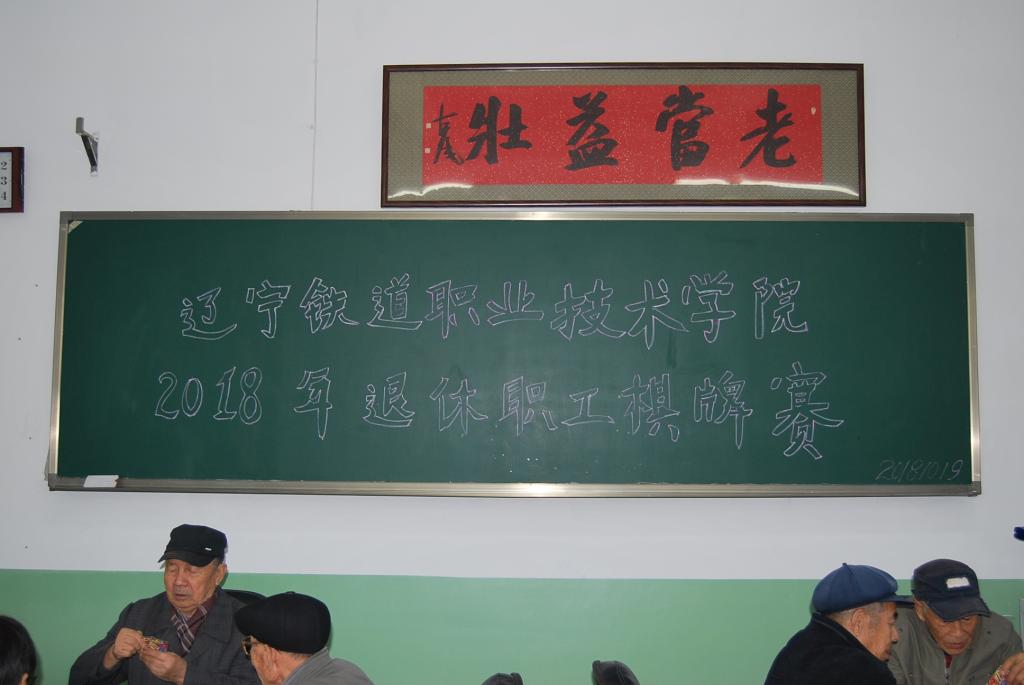 老當益壯
辽宁铁道职业技术学院
2018年退休职工棋牌赛
20181019
2
3
4